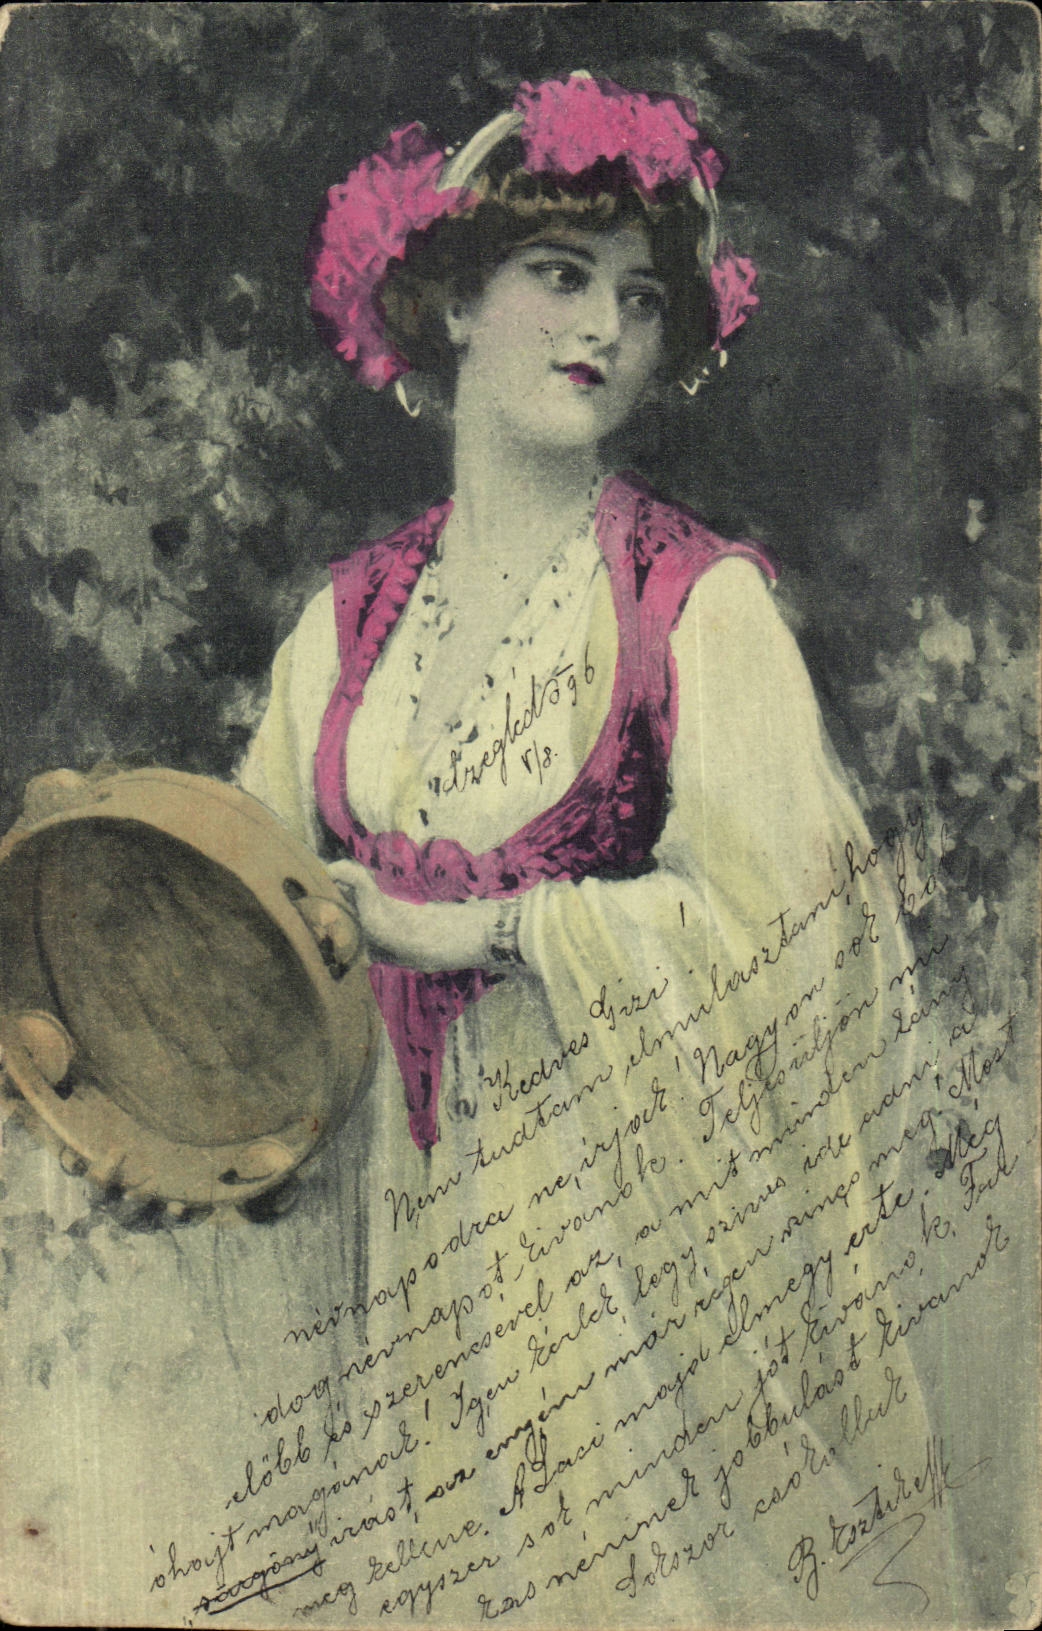 Czegléd 906
V/8.
Kedves Gizi!
Nem tudtam elmulasztani, hogy
névnapodra ne írjak! Nagyon sok bol
dog névnapot kivánok. Teljesüljön mi
előbb és szerencsével az, a mit minden lány
óhajt magának! Igen kérlek, légy szives ide adni a
"sárgöny" írást, az enyém már régen nincs meg. Most
meg kellene. A Laci majd elmegy érte. Még
egyszer sok minden jót kivánok, Far
kas néninek jobbulást kivánok
Sokszor csókollak
B. Esztike